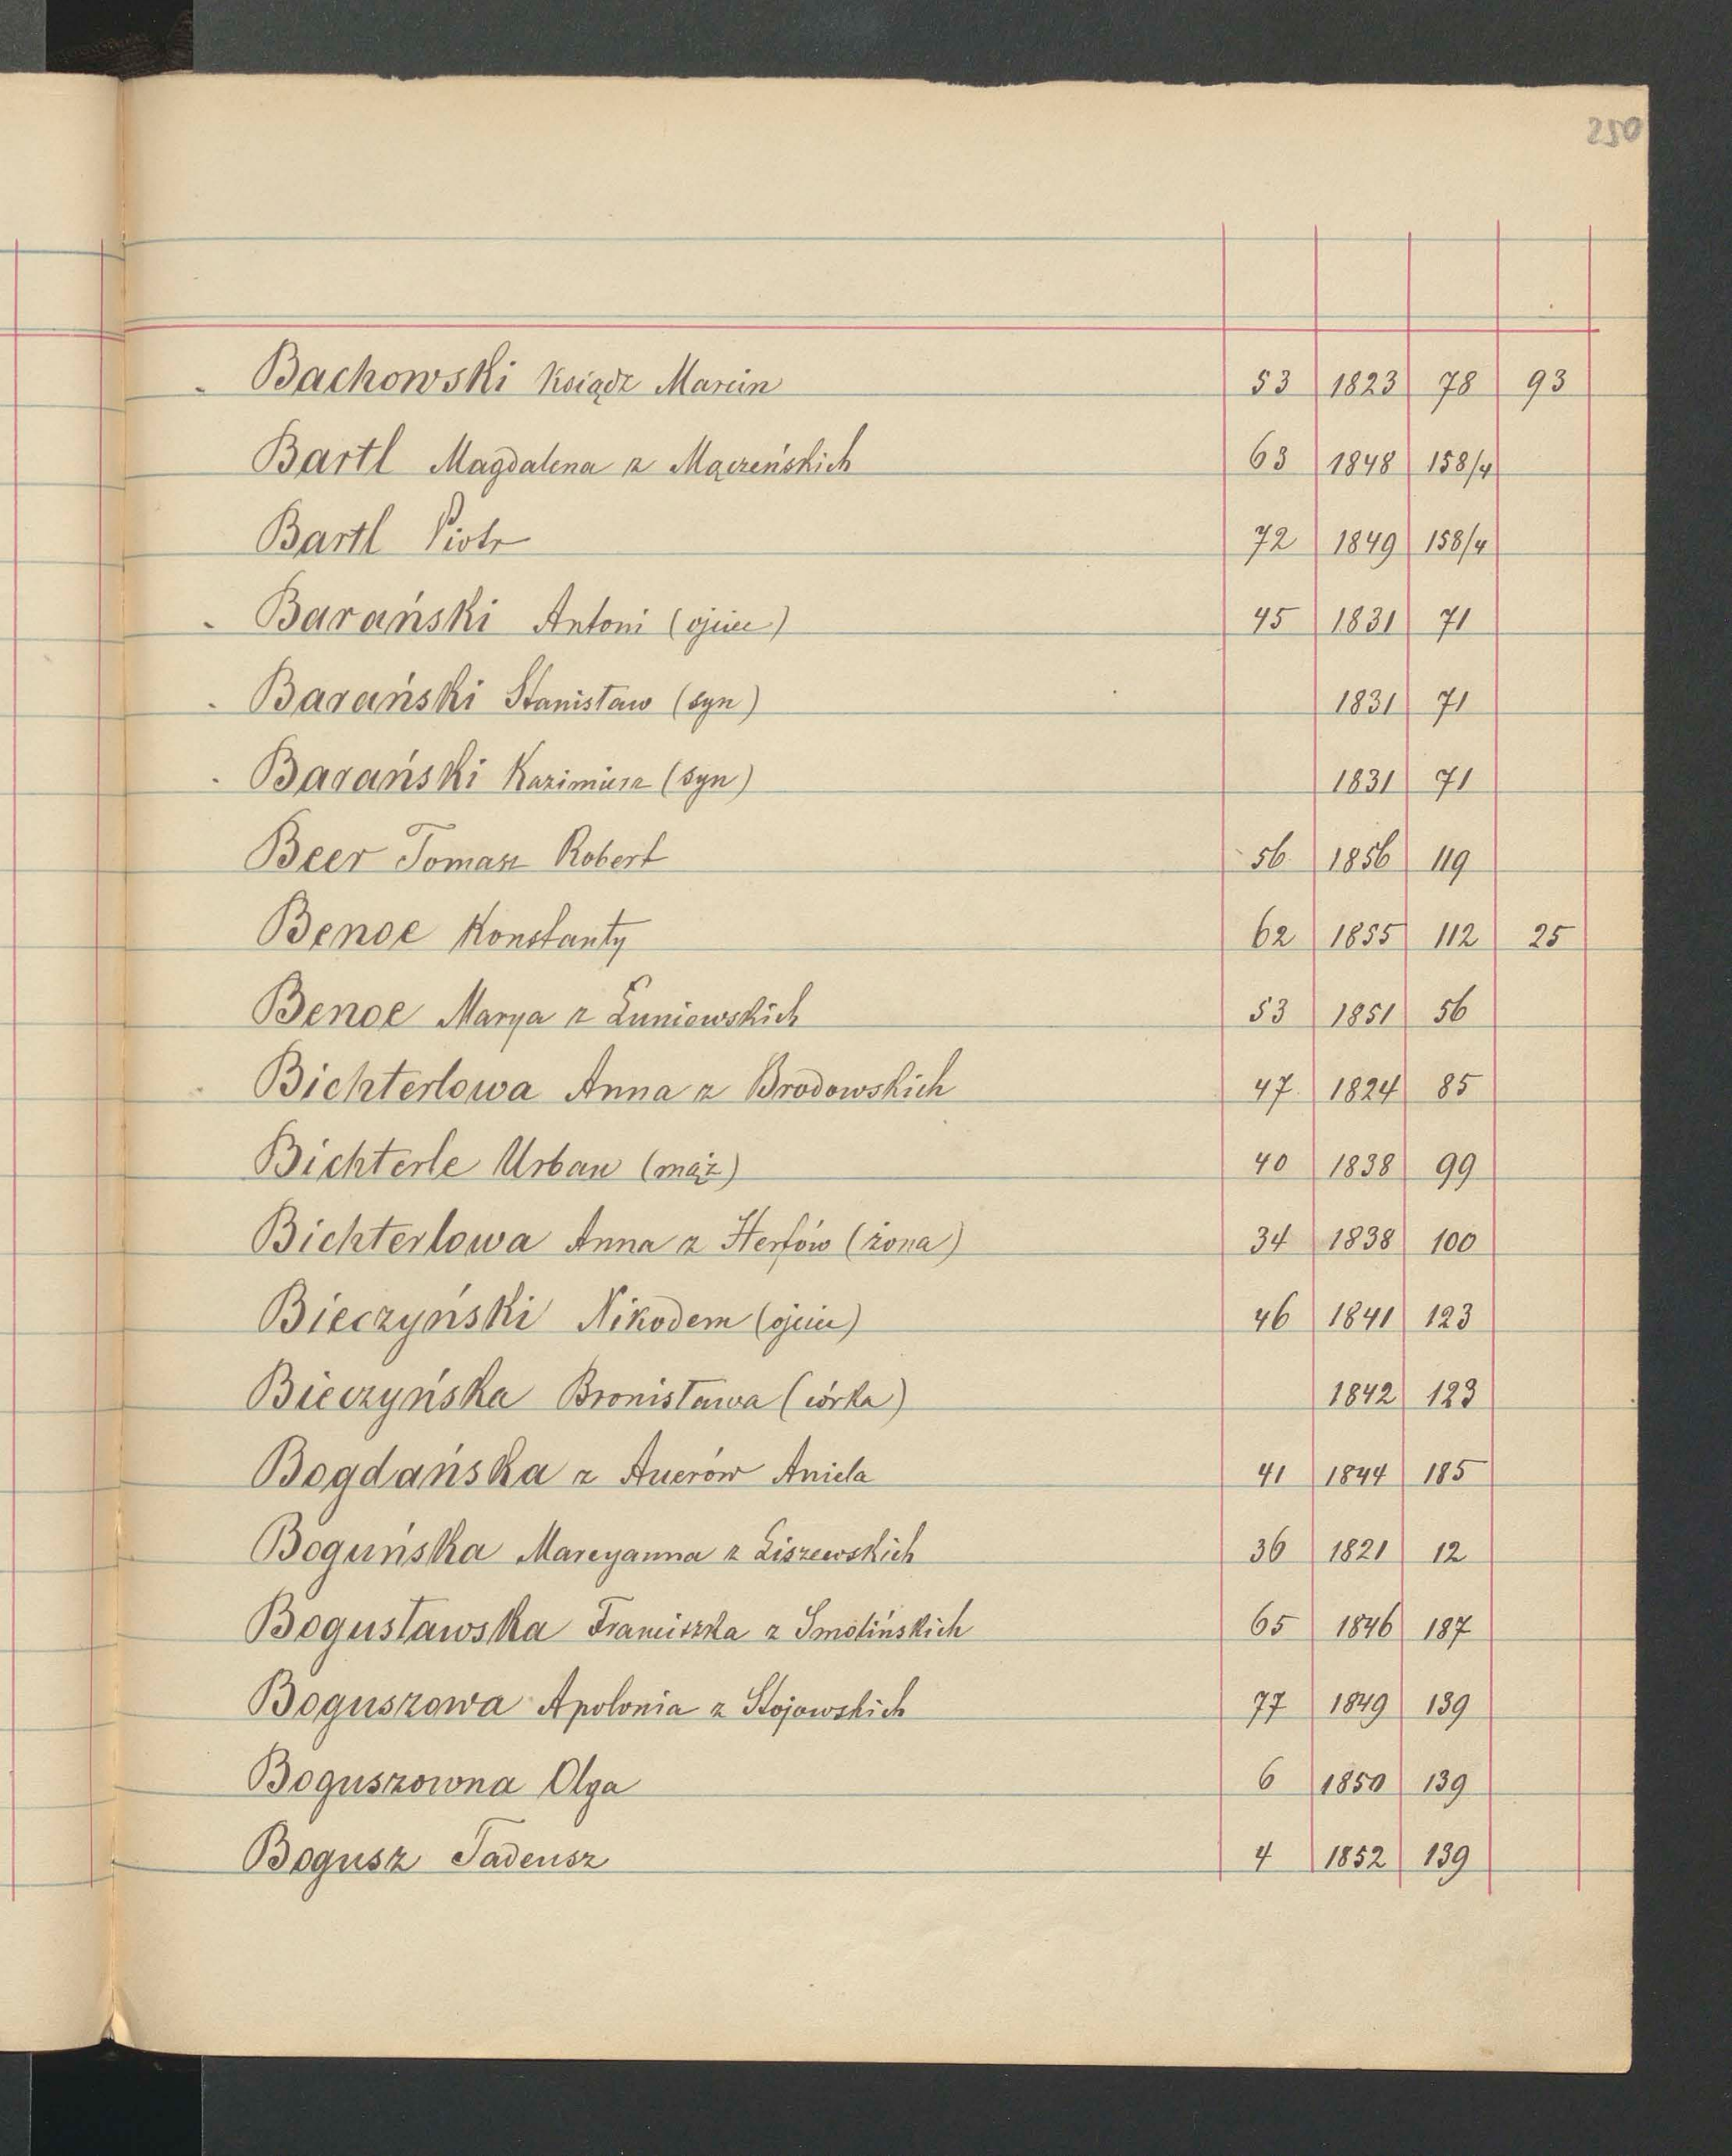 250
Bachowski Ksiądz Marcin 53 1823 78 93
Bartl Magdalena z Mączeńskich 63 1848 158/4
Bartl Piotr 72 1849 158/4
Barański Antoni (ojciec) 45 1831 71
Barański Stanisław (syn) 1831 71
Barański Kazimierz (syn) 1831 71
Beer Tomasz Robert 56 1856 119
Benoe Konstanty 62 1855 112 25
Benoe Marya z Łuniewskich 53 1851 56
Bichterlowa Anna z Brodowskich 47 1824 85
Bichterle Urban (mąż) 40 1838 99
Bichterlowa Anna z Hertów (żona) 34 1838 100
Bieczyński Nikodem (ojciec) 46 1841 123
Bieczyńska Bronisława (córka) 1842 123
Bogdańska z Auerów Aniela 41 1844 185
Boguńska Marcyanna z Liszewskich 36 1821 12
Bogusławska Franciszka z Smolińskich 65 1846 187
Boguszowa Apolonia z Stojowskich 77 1849 139
Boguszowna Olga 6 1850 139
Bogusz Tadeusz 4 1852 139